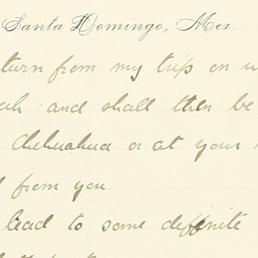 Santa Domingo, Mex.
turn from my trip on
and shall then be
Chihuahua or at your
from you.
lead to some definite